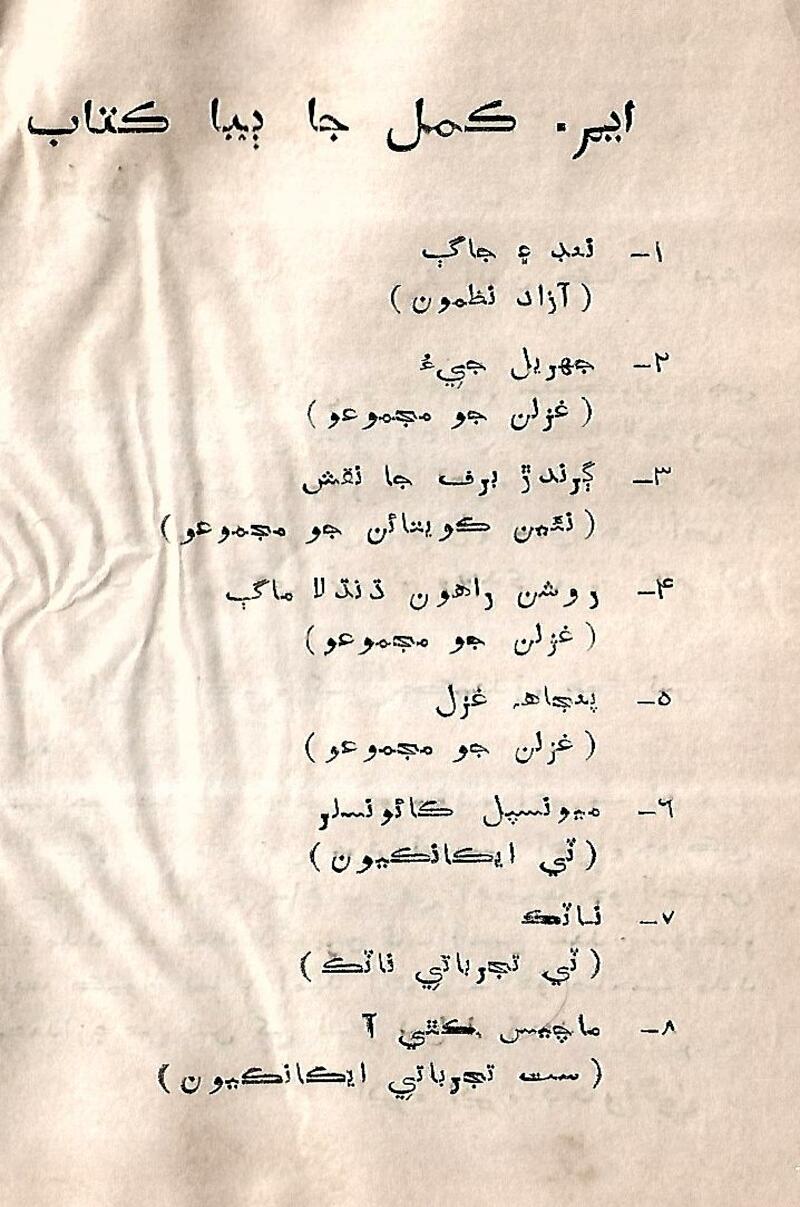 ايم. ڪمل جا ٻيا ڪتاب
١– ننڊ ۽ جاڳ
( آزاد نظمون )
٢– جھريل جيءُ
( غزلن جو مجموعو )
٣– ڳرندڙ برف جا نقش
( نئين ڪويتائن جو مجموعو )
۴– روشن راهون ڌنڌلا ماڳ
( غزلن جو مجموعو )
٥– پنجاهہ غزل
( غزلن جو مجموعو )
٦– ميونسپل ڪائونسلر
( ٽي ايڪانڪيون )
٧– ناٽڪ
( ٽي تجرباتي ناٽڪ )
٨– ماچيس ڪٿي آ
( ست تجرباتي ايڪانڪيون )